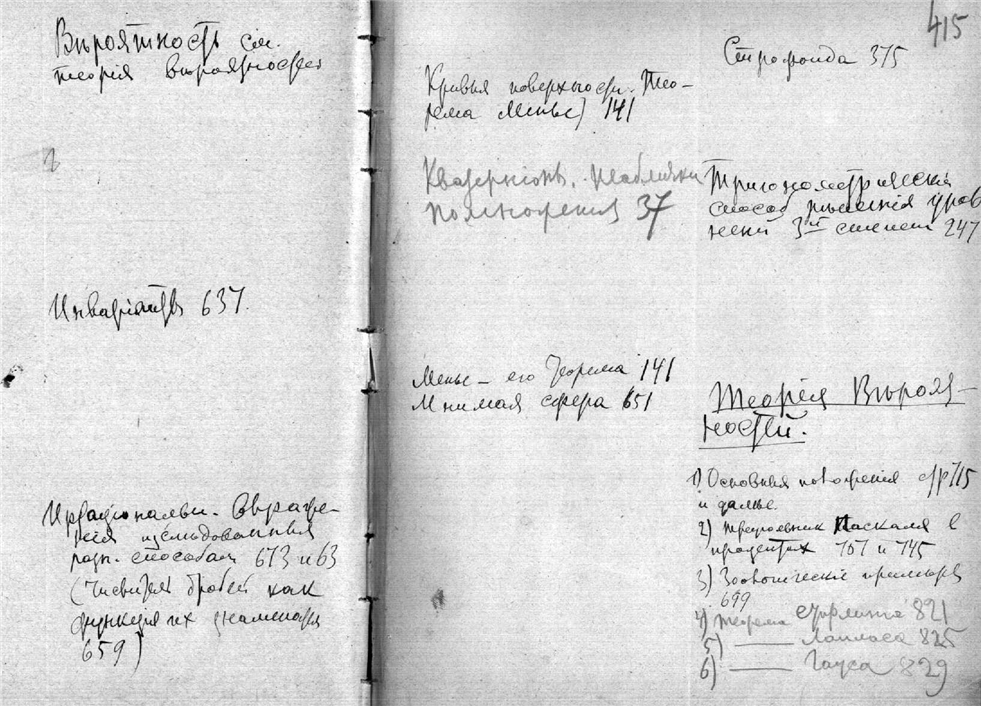 Вѣроятность см.
теорія вѣроятностей
Инваріанты 637.
Ирраціональн. Выраже-
нія изслѣдованныя
разн. способам 673 и 63
(Числителя дробей как
функція их знаменателя
659)
415
Кривыя поверхности. Тео-
рема Менье) 141
Кватерніонъ. Таблички
умноженія 37
Менье – его теорема 141
Мнимая сфера 651
Строфоида 375
Тригонометрическій
способ рѣшенія урав
неній 3й степени 247
Теорія Вѣроят-
ностей.
1) Основныя положенія стр 715
и далѣе.
2) треугольник Паскаля в
процентах 767 и 745
3) Зоологическіе примѣры
699
4) Теорема Стирлинга 821
5) —— Лапласа 825
6) —— Гауса 829